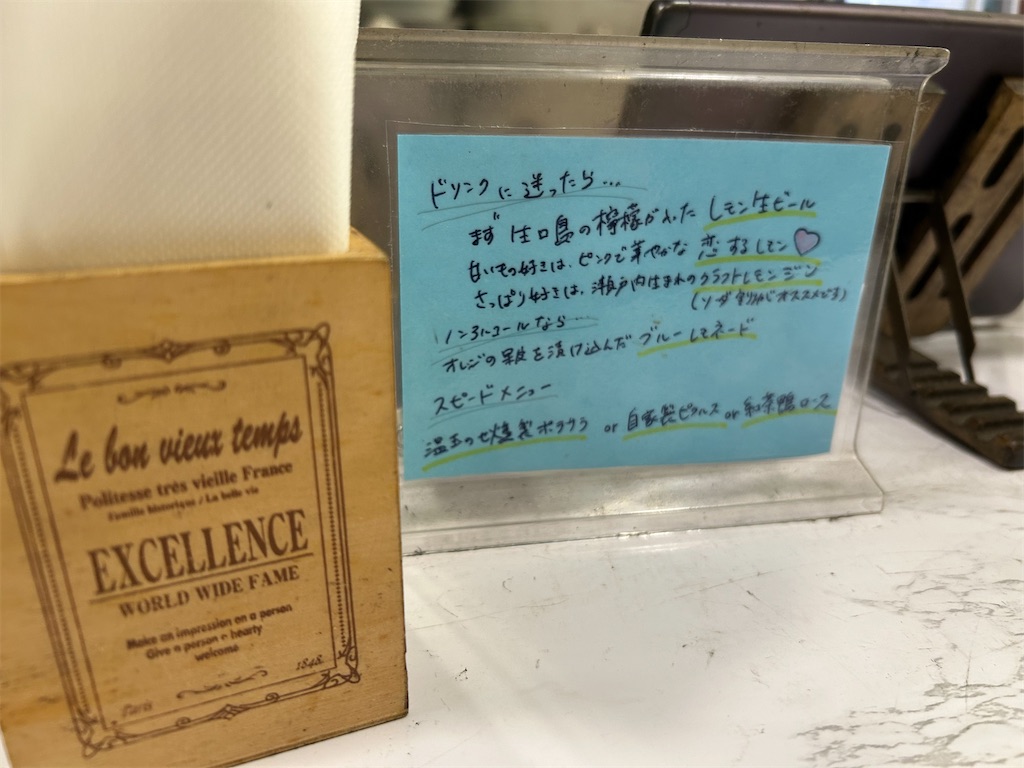 Le bon vieux temps
Politesse très vieille France
Famille historique / La belle vie
EXCELLENCE
WORLD WIDE FAME
Make an impression on a person
Give a person a hearty
welcome
Paris
1848
ドリンクに迷ったら…
まず 生口島の檸檬が入った レモン生ビール
甘いもの好きは、ピンクで華やかな 恋するレモン
さっぱり好きは、瀬戸内生まれのクラフトレモンジン
(ソーダ割りがオススメです)
ノンアルコールなら…
オレンジの果皮を漬け込んだ ブルーレモネード
スピードメニュー
温玉のせ燻製ポテサラ or 自家製ピクルス or 紅茶鴨ロース